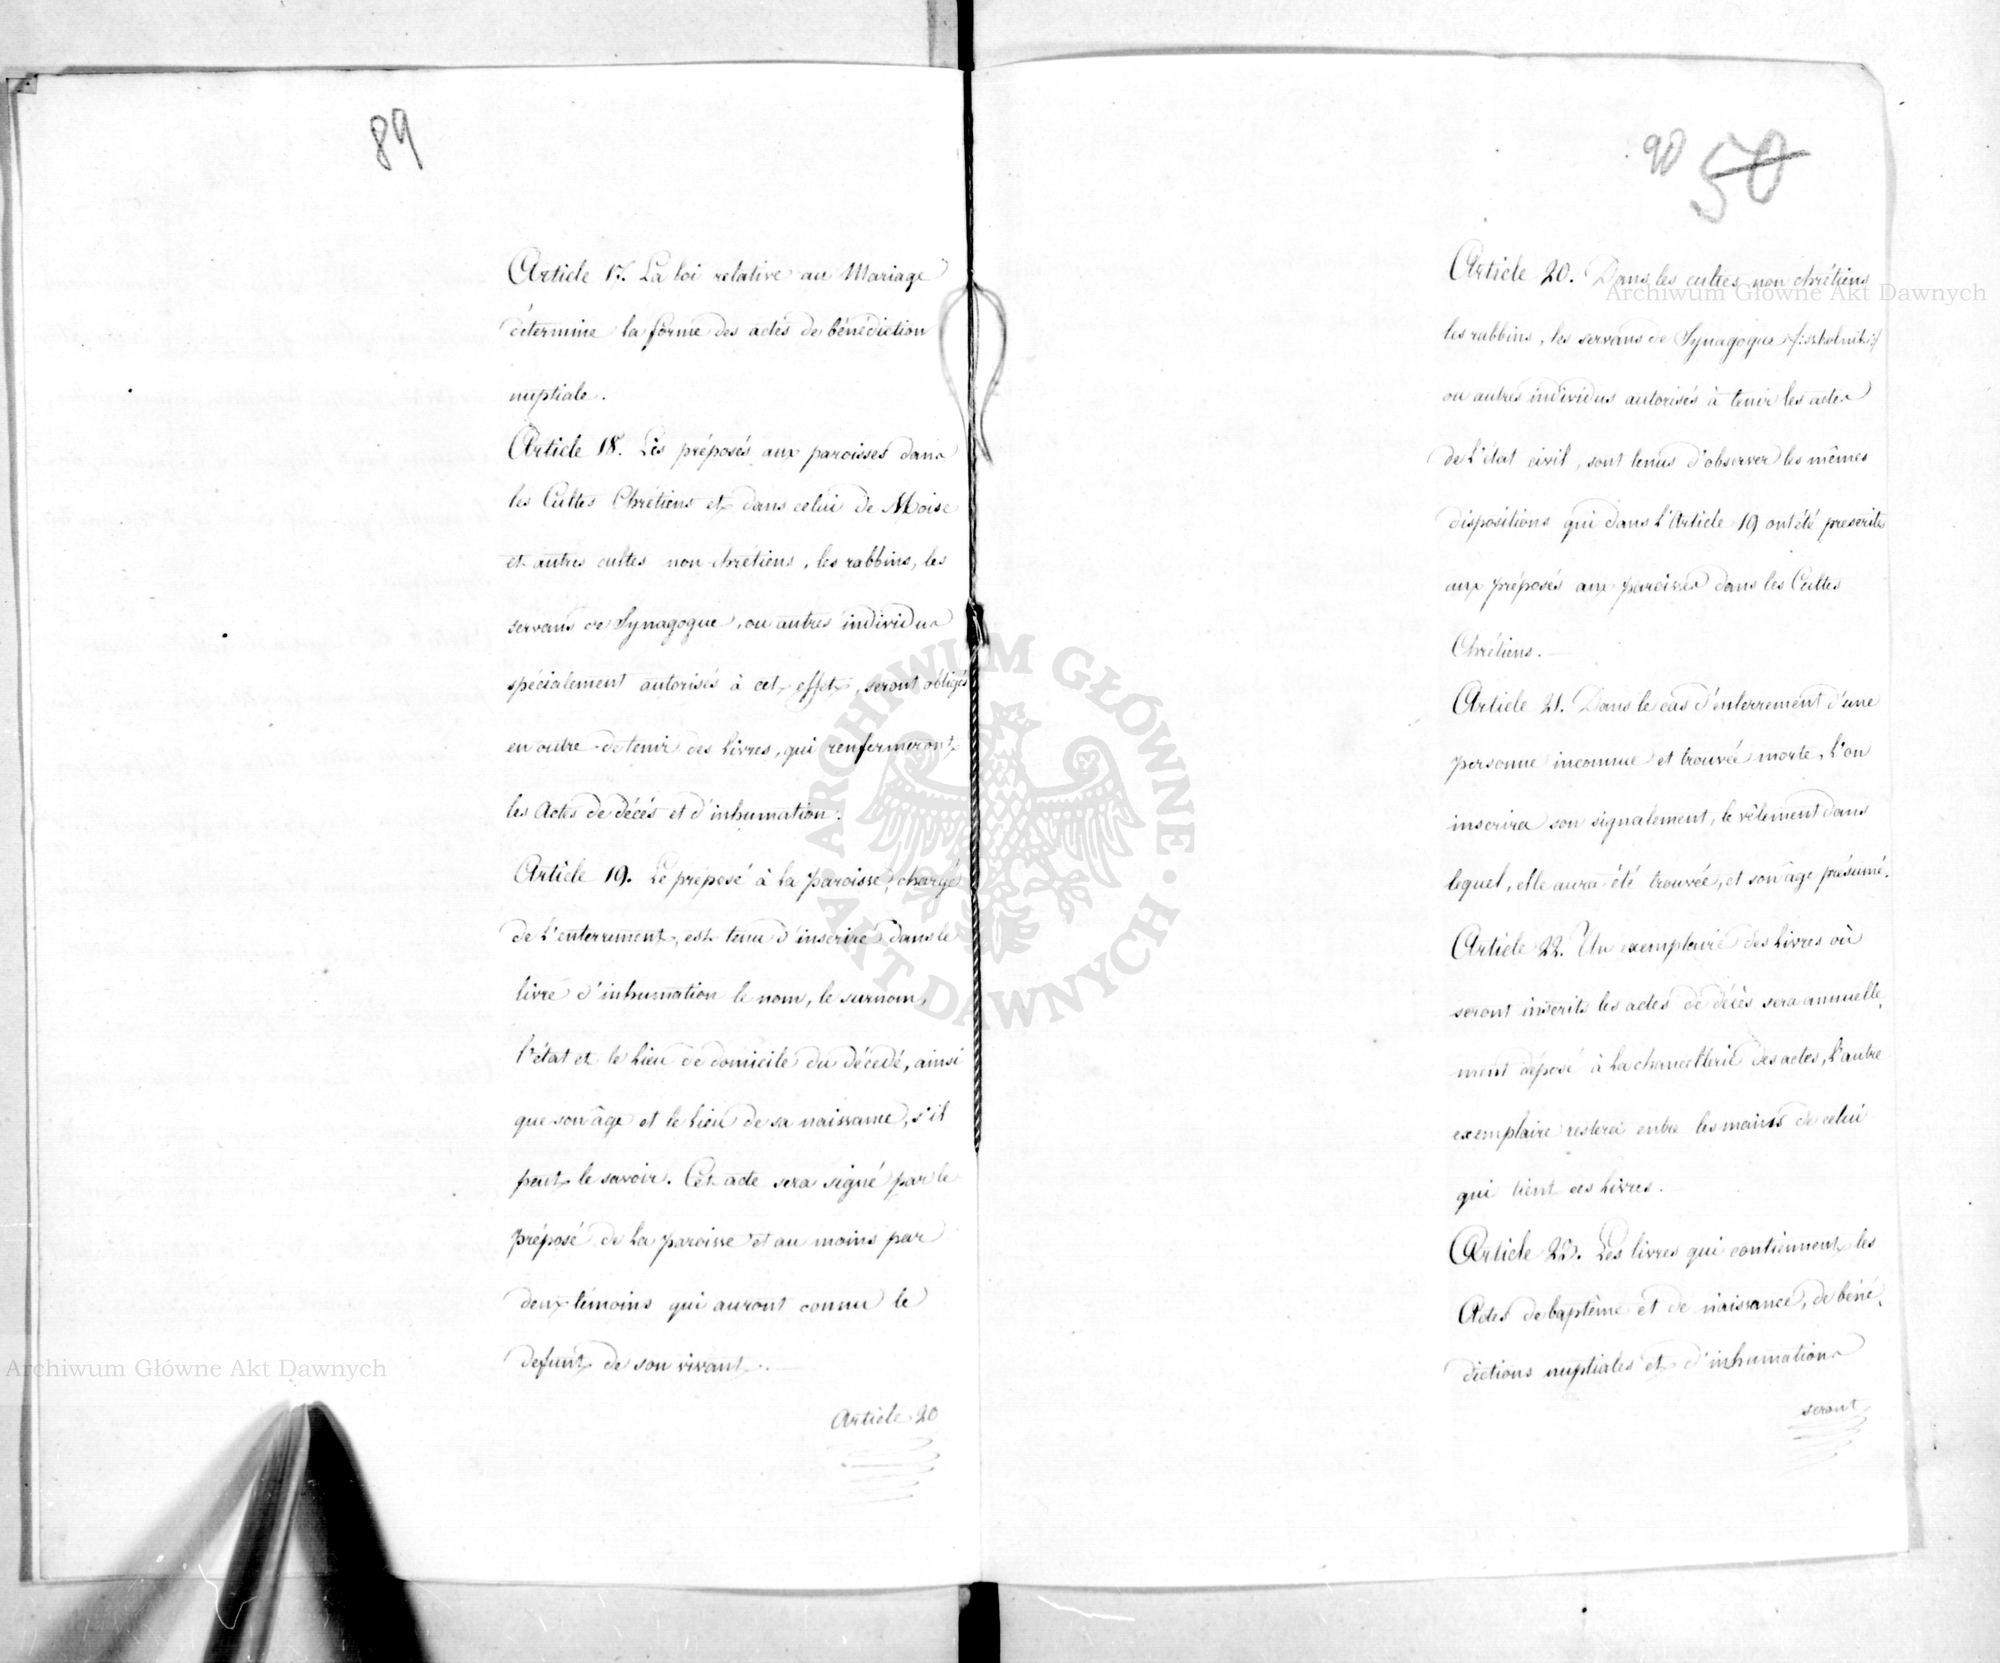 89
Article 17. La loi relative au Mariage
détermine la forme des actes de bénédiction
nuptiale.
Article 18. Les préposés aux paroisses dans
les Cultes Chrétiens et dans celui de Moise
et autres cultes non-chrétiens, les rabbins, les
servans de Synagogue, ou autres individus
spécialement autorisés à cet effet, seront obligés
en outre de tenir des livres, qui renfermeront
les Actes de décès et d'inhumation.
Article 19. Le préposé à la paroisse, chargé
de l'enterrement, est tenu d'inscrire dans le
livre d'inhumation le nom, le surnom,
l'état et le lieu de domicile du décédé, ainsi
que son âge et le lieu de sa naissance, s'il
peut le savoir. Cet acte sera signé par le
préposé de la paroisse et au moins par
deux témoins qui auront connu le
defunt de son vivant.
Article 20
90 50
Article 20. Dans les cultes non chrétiens
les rabbins, les servans de Synagogue /:szkolniki:/
ou autres individus autorisés à tenir les actes
de l'état civil, sont tenus d'observer les mêmes
dispositions qui dans l'Article 19 ont été prescrites
aux préposés aux paroisses dans les Cultes
Chrétiens.
Article 21. Dans le cas d'enterrement d'une
personne inconnue et trouvée morte, l'on
inscrira son signalement, le vêtement dans
lequel, elle aura été trouvée, et son âge présumé.
Article 22. Un exemplaire des livres où
seront inscrits les actes de décès sera annuelle
ment déposé à la chancellerie des actes, l'autre
exemplaire restera entre les mains de celui
qui tient ces livres.
Article 23. Les livres qui contiennent les
Actes de baptême et de naissance, de béné
dictions nuptiales et d'inhumations
seront
Archiwum Główne Akt Dawnych
Archiwum Główne Akt Dawnych
ARCHIWUM GŁÓWNE
AKT DAWNYCH